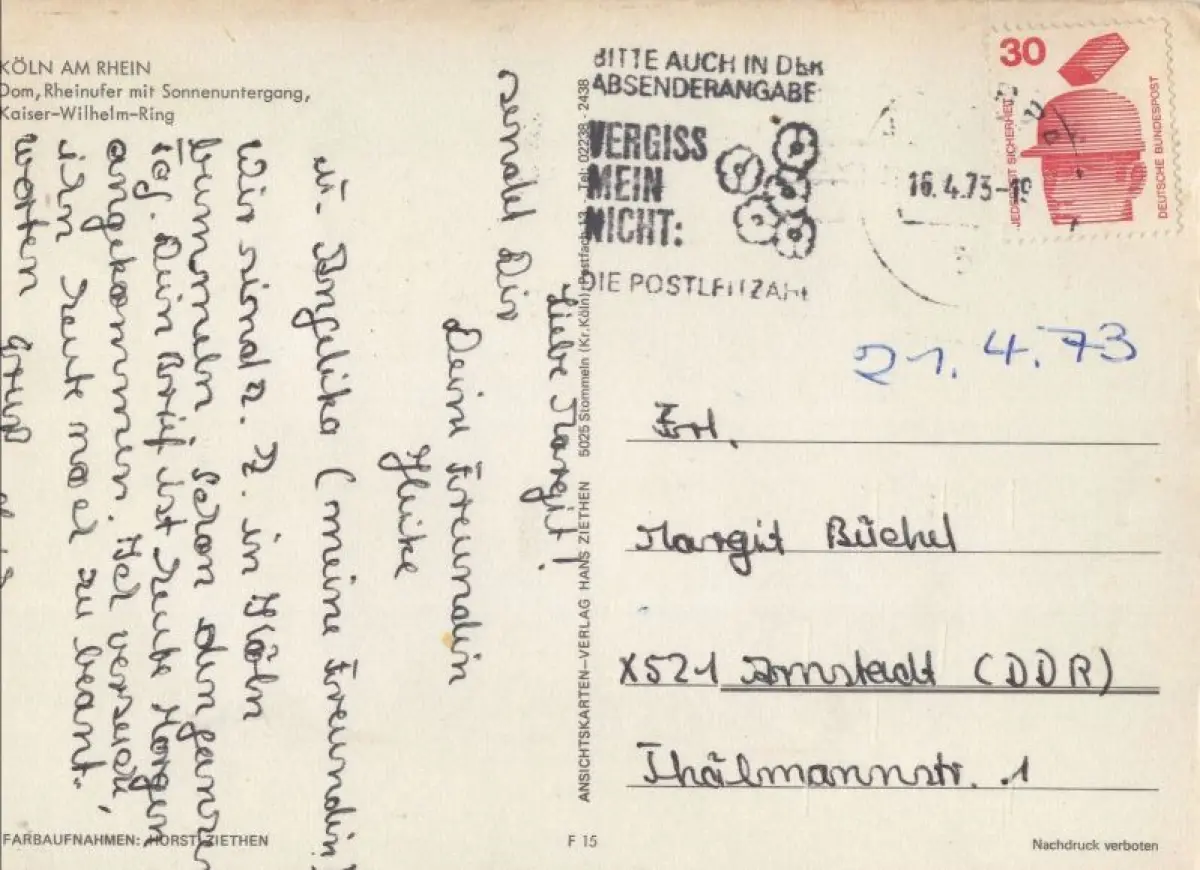 KÖLN AM RHEIN
Dom, Rheinufer mit Sonnenuntergang,
Kaiser-Wilhelm-Ring
Liebe Margit!
Wir sind z. Z. in Köln
bummeln schon den ganzen
Tag. Dein Brief ist heute Morgen
angekommen. Ich versuch,
ihn heute noch zu beant-
worten
Gruß
sendet Dir
Deine Freundin
Heike
u. Angelika (meine Freundin!)
FARBAUFNAHMEN: HORST ZIETHEN
ANSICHTSKARTEN-VERLAG HANS ZIETHEN 5025 Stommeln (Kr. Köln) Postfach 13 - Tel: 02238 - 2438
F 15
BITTE AUCH IN DER
ABSENDERANGABE
VERGISS
MEIN
NICHT:
DIE POSTLEITZAHL
16.4.73-19
30
JEDERZEIT SICHERHEIT
DEUTSCHE BUNDESPOST
21.4.73
Frl.
Margit Büchel
X521 Arnstadt (DDR)
Thälmannstr. 1
Nachdruck verboten